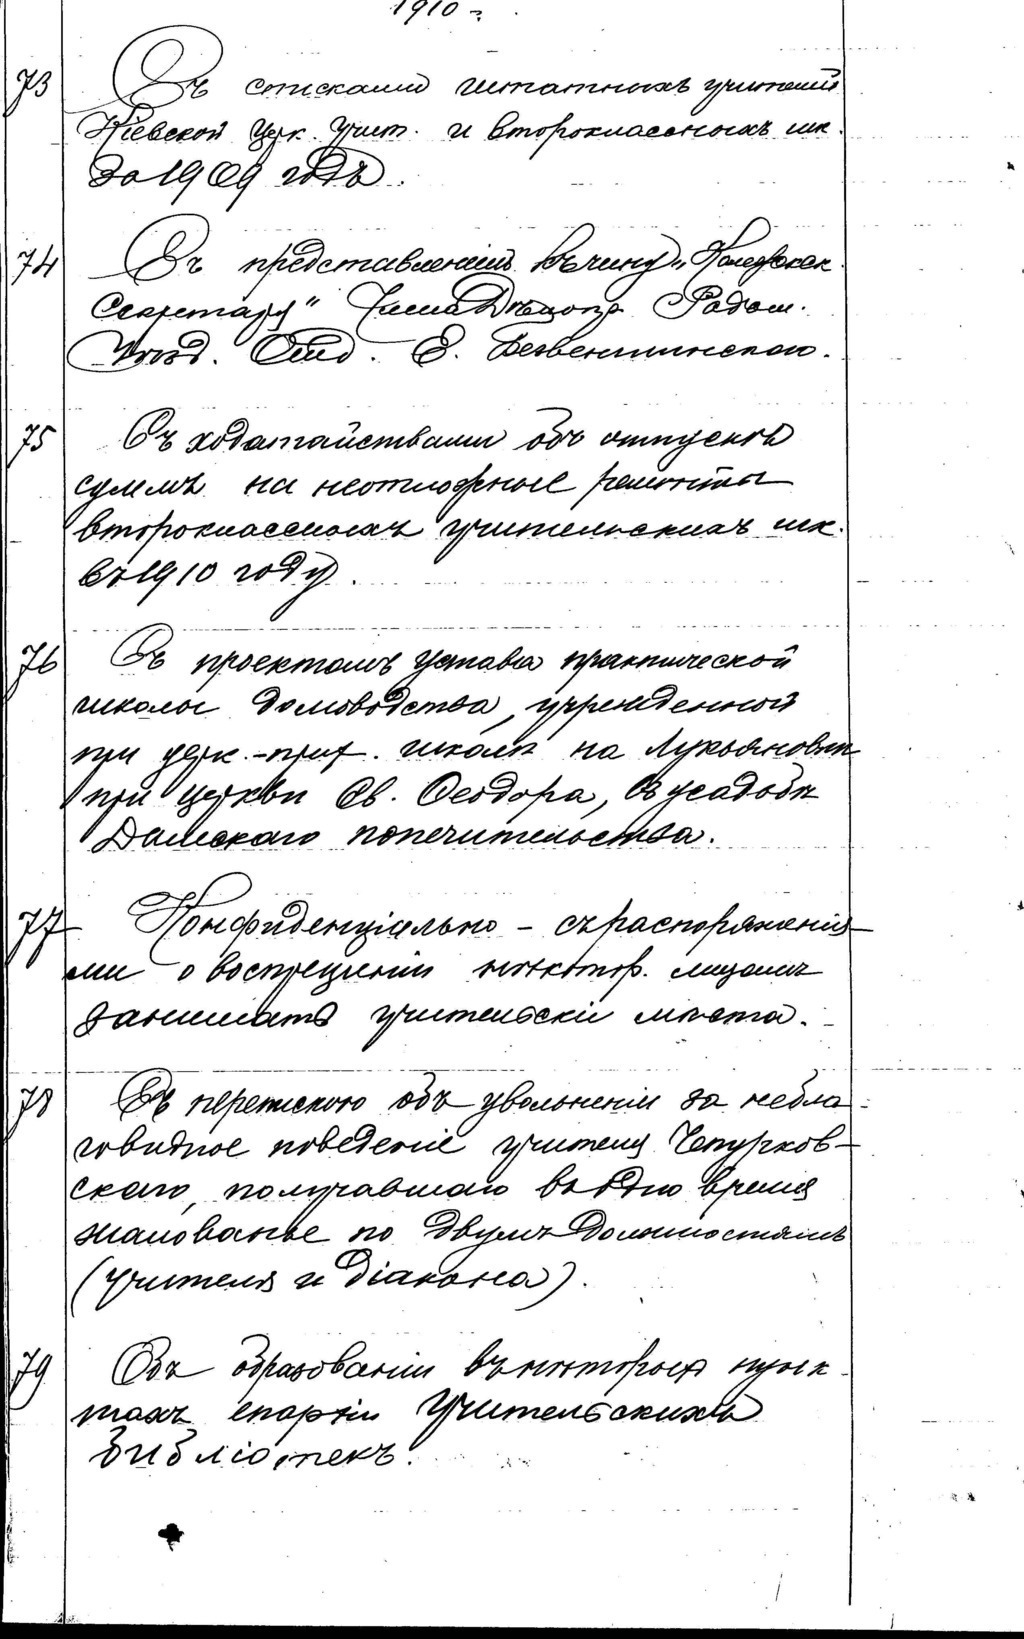 1910 г.
73 Съ списками штатныхъ учителей
Кіевской Церк. Учит. и второклассныхъ шк.
за 1909 годъ.
74 Съ представленіемъ къ чину „Коллежск.
Секретаря" Радом.
Уѣзд. Отд. Е. Безвенглинскаго.
75 Съ ходатайствами объ отпускѣ
суммъ на неотложные ремонты
второклассныхъ учительскихъ шк.
въ 1910 году.
76 Съ проектомъ устава практической
школы домоводства, учрежденной
при церк.-прих. школѣ на Лукьяновкѣ
при церкви Св. Ѳеодора, въ усадьбѣ
Дамскаго попечительства.
77 Конфиденціально - съ распоряженія-
ми о воспрещеніи нѣкотор. лицамъ
занимать учительскіе мѣста.
78 Съ перепискою объ увольненіи за небла-
говидное поведеніе учителя Чепурков-
скаго, получавшаго въ одно время
жалованье по двумъ должностямъ
(учителя и діакона).
79 Объ образованіи въ нѣкоторыхъ пунк-
тахъ епархіи Учительскихъ
библіотекъ.